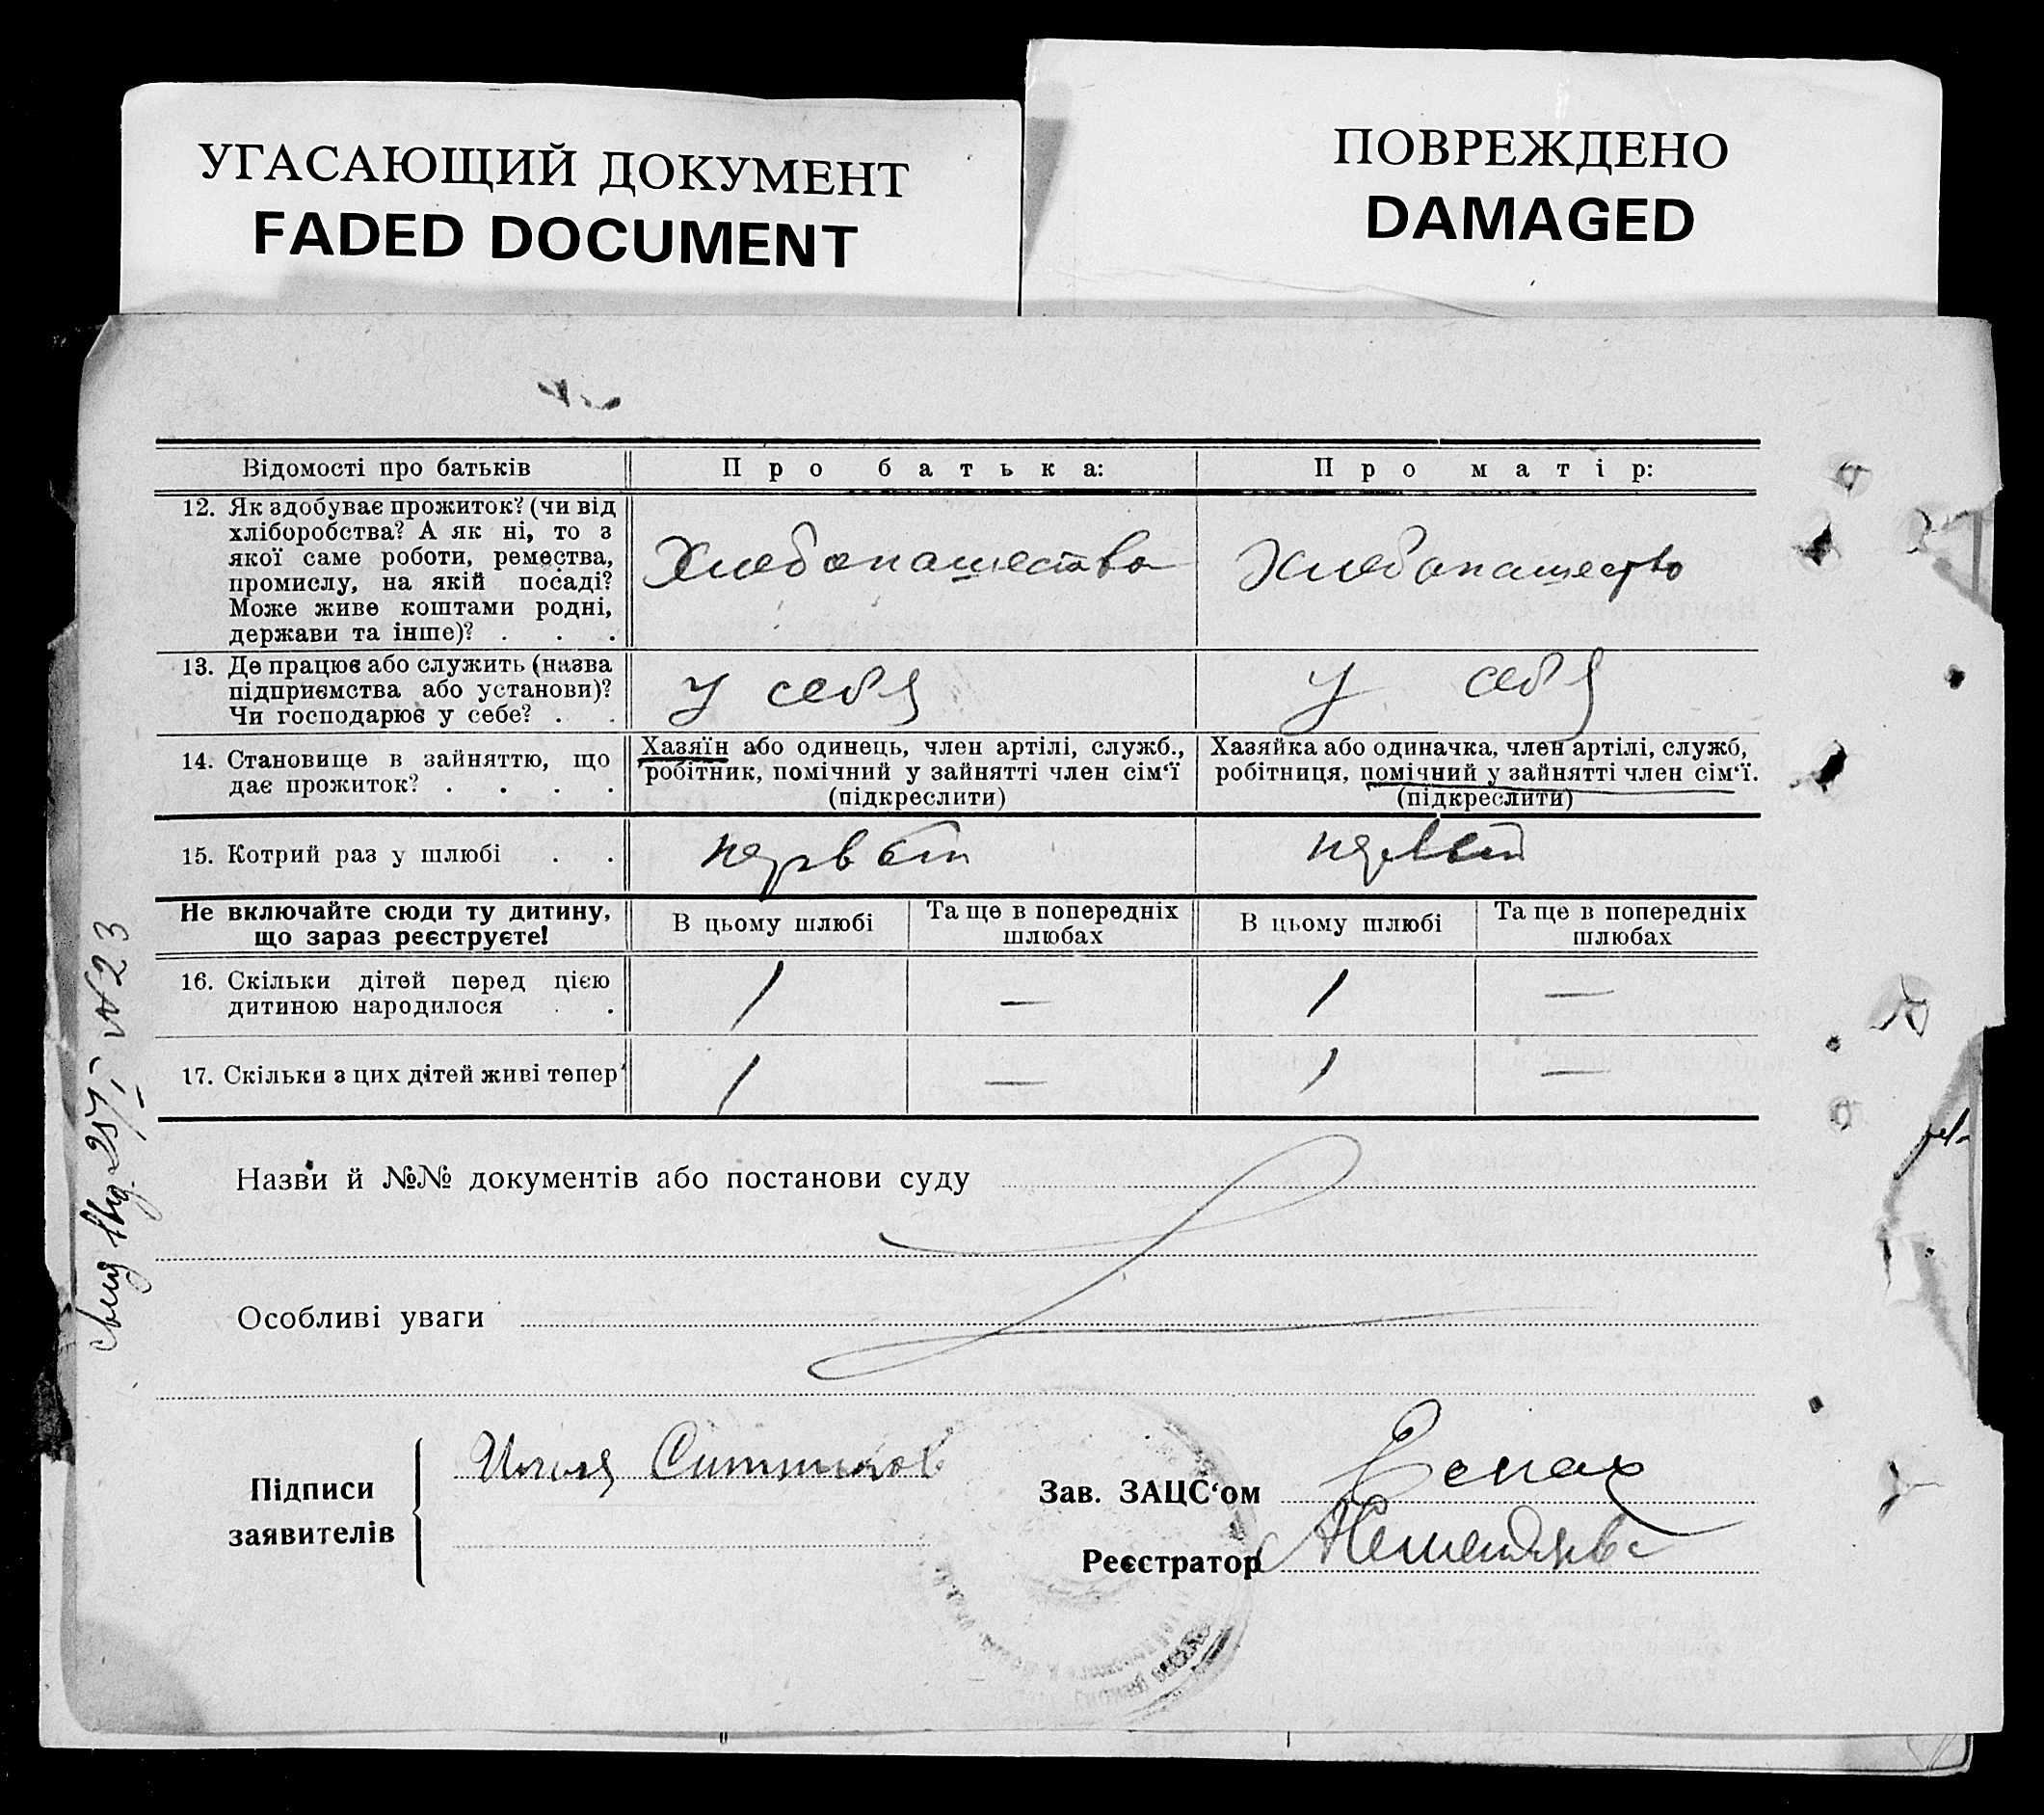 УГАСАЮЩИЙ ДОКУМЕНТ
FADED DOCUMENT
ПОВРЕЖДЕНО
DAMAGED
Відомості про батьків
Про батька:
Про матір:
12. Як здобуває прожиток? (чи від
хліборобства? А як ні, то з
якої саме роботи, ремества,
промислу, на якій посаді?
Може живе коштами родні,
держави та інше)? . . .
Хлебопашество
Хлебопашество
13. Де працює або служить (назва
підприємства або установи)?
Чи господарює у себе? . .
у себя
у себя
14. Становище в зайняттю, що
дає прожиток? . . . .
Хазяїн або одинець, член артілі, служб.,
робітник, помічний у зайнятті член сім‘ї
(підкреслити)
Хазяйка або одиначка, член артілі, служб,
робітниця, помічний у зайнятті член сім‘ї.
(підкреслити)
15. Котрий раз у шлюбі . .
первый
первый
Не включайте сюди ту дитину,
що зараз реєструєте!
В цьому шлюбі
Та ще в попередніх
шлюбах
В цьому шлюбі
Та ще в попередніх
шлюбах
16. Скільки дітей перед цією
дитиною народилося . .
1
—
1
—
17. Скільки з цих дітей живі тепер
1
—
1
—
Назви й №№ документів або постанови суду
Особливі уваги
Підписи
заявителів
Ситников
Зав. ЗАЦС‘ом
Реєстратор
№23